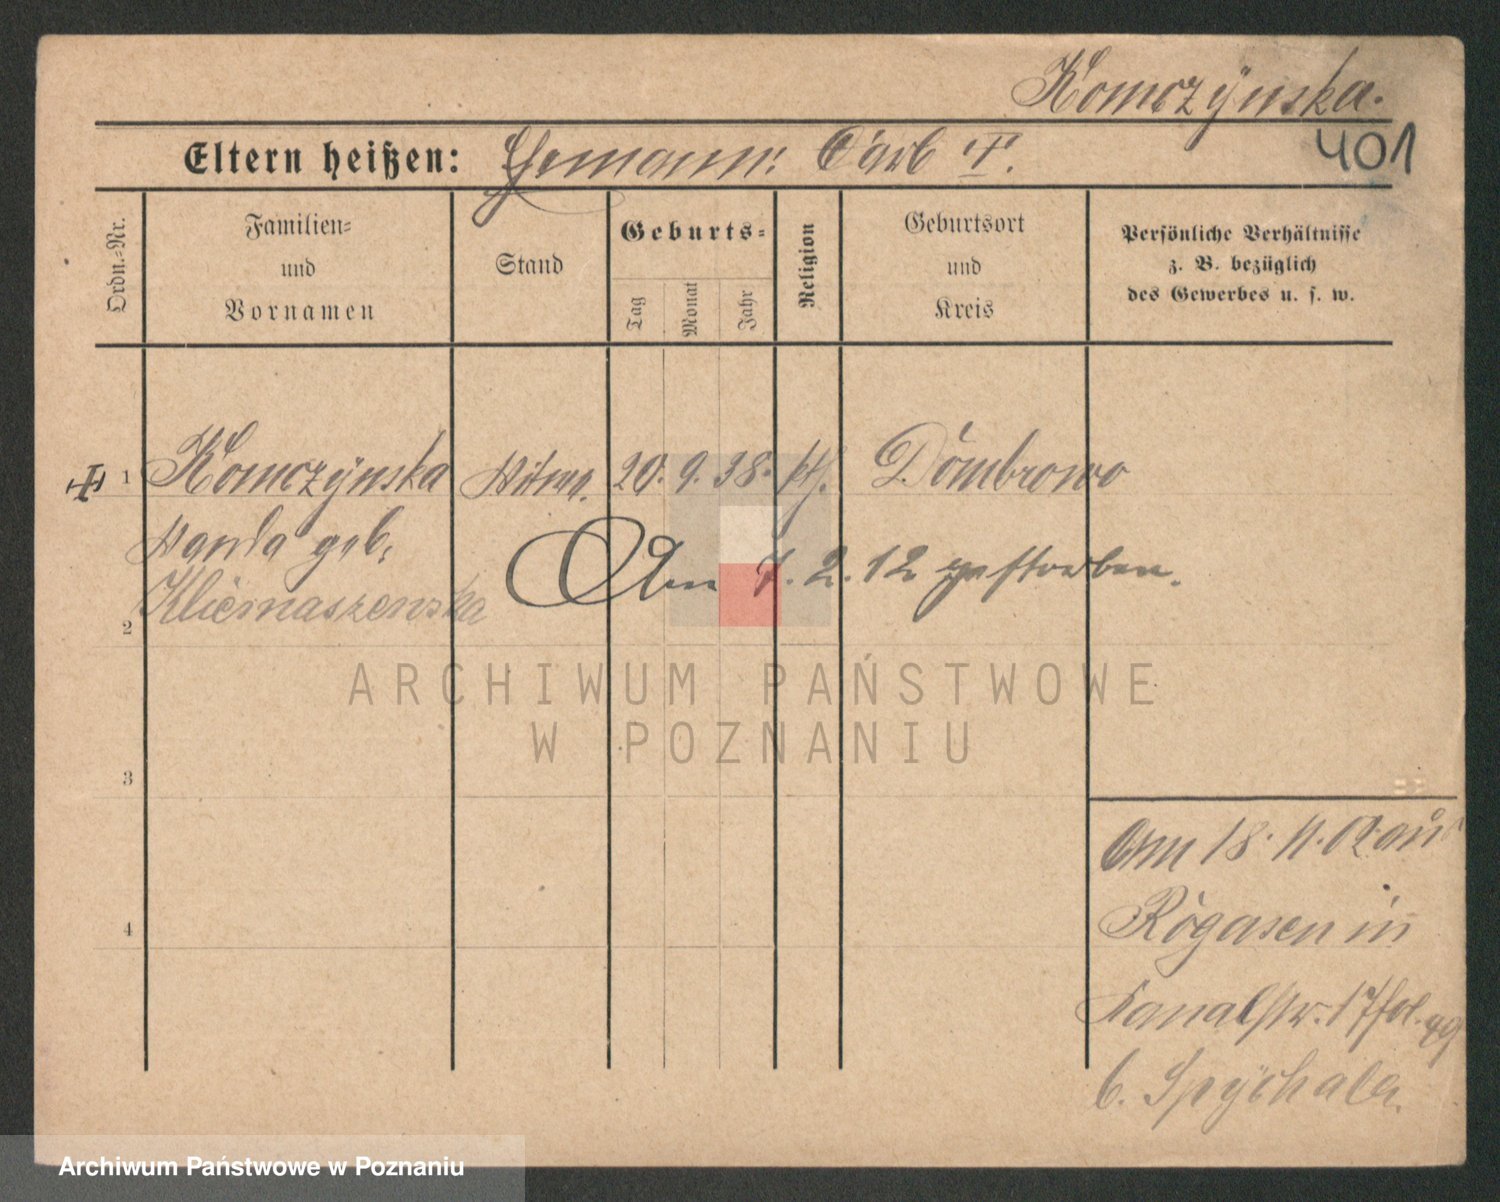 Komczÿnska.
401
Eltern heißen: Ehemann: Carl †.
Ordn.-Nr.
Familien- und Vornamen
Stand
Geburts-
Tag
Monat
Jahr
Religion
Geburtsort und Kreis
Persönliche Verhältnisse
z. B. bezüglich
des Gewerbes u. s. w.
† 1 Komczÿnska Witwe. 20. 9. 38. kth. Dombrowo
Wanda geb.
Am 7. 2. 12 gestorben.
2 Kliemaszewska
ARCHIWUM PAŃSTWOWE
W POZNANIU
3
Am 18. 11. 02 aus
4
Rogasen in
Kanalstr. 17 fol. 49
b. Spÿchala.
Archiwum Państwowe w Poznaniu